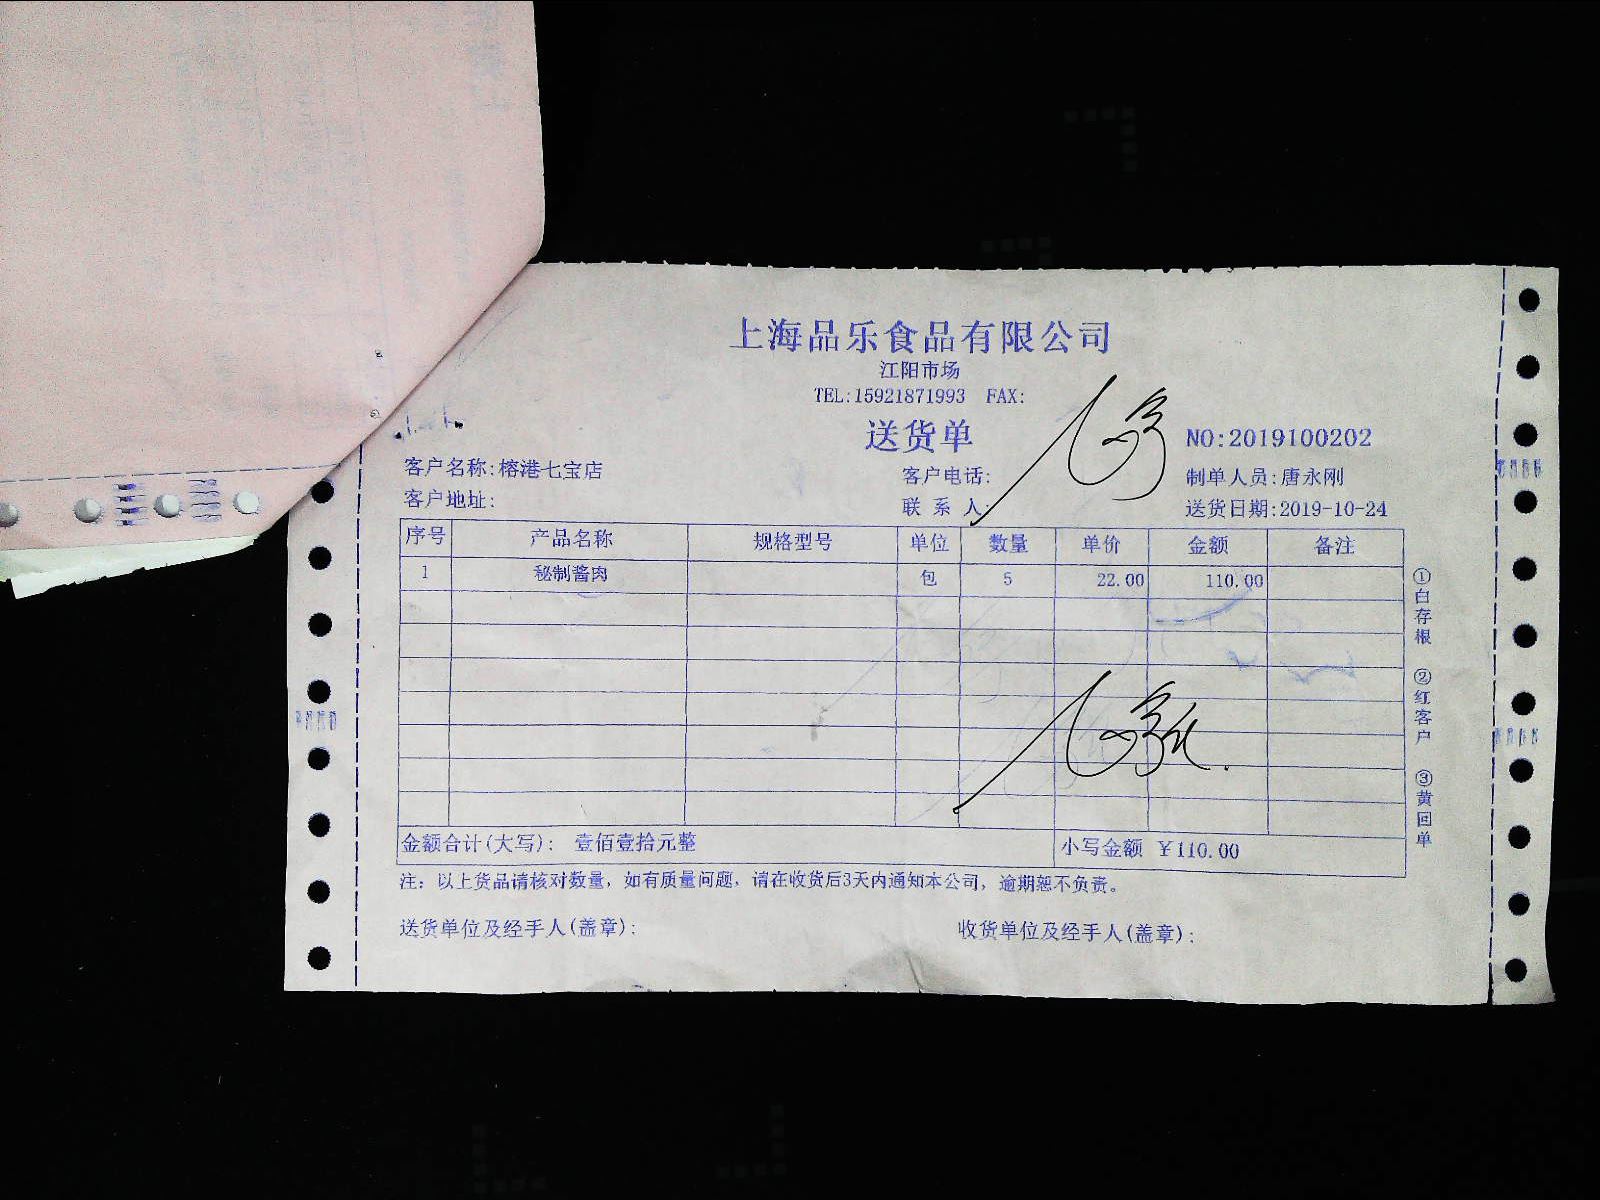 上海品乐食品有限公司
江阳市场
TEL:15921871993 FAX:
送货单
NO:2019100202
客户名称:榕港七宝店 客户电话: 制单人员:唐永刚
客户地址: 联系人: 送货日期:2019-10-24
序号 产品名称 规格型号 单位 数量 单价 金额 备注
1 秘制酱肉 包 5 22.00 110.00
金额合计(大写): 壹佰壹拾元整 小写金额 ￥110.00
注: 以上货品请核对数量, 如有质量问题, 请在收货后3天内通知本公司, 逾期恕不负责。
送货单位及经手人(盖章): 收货单位及经手人(盖章):
①白存根 ②红客户 ③黄回单